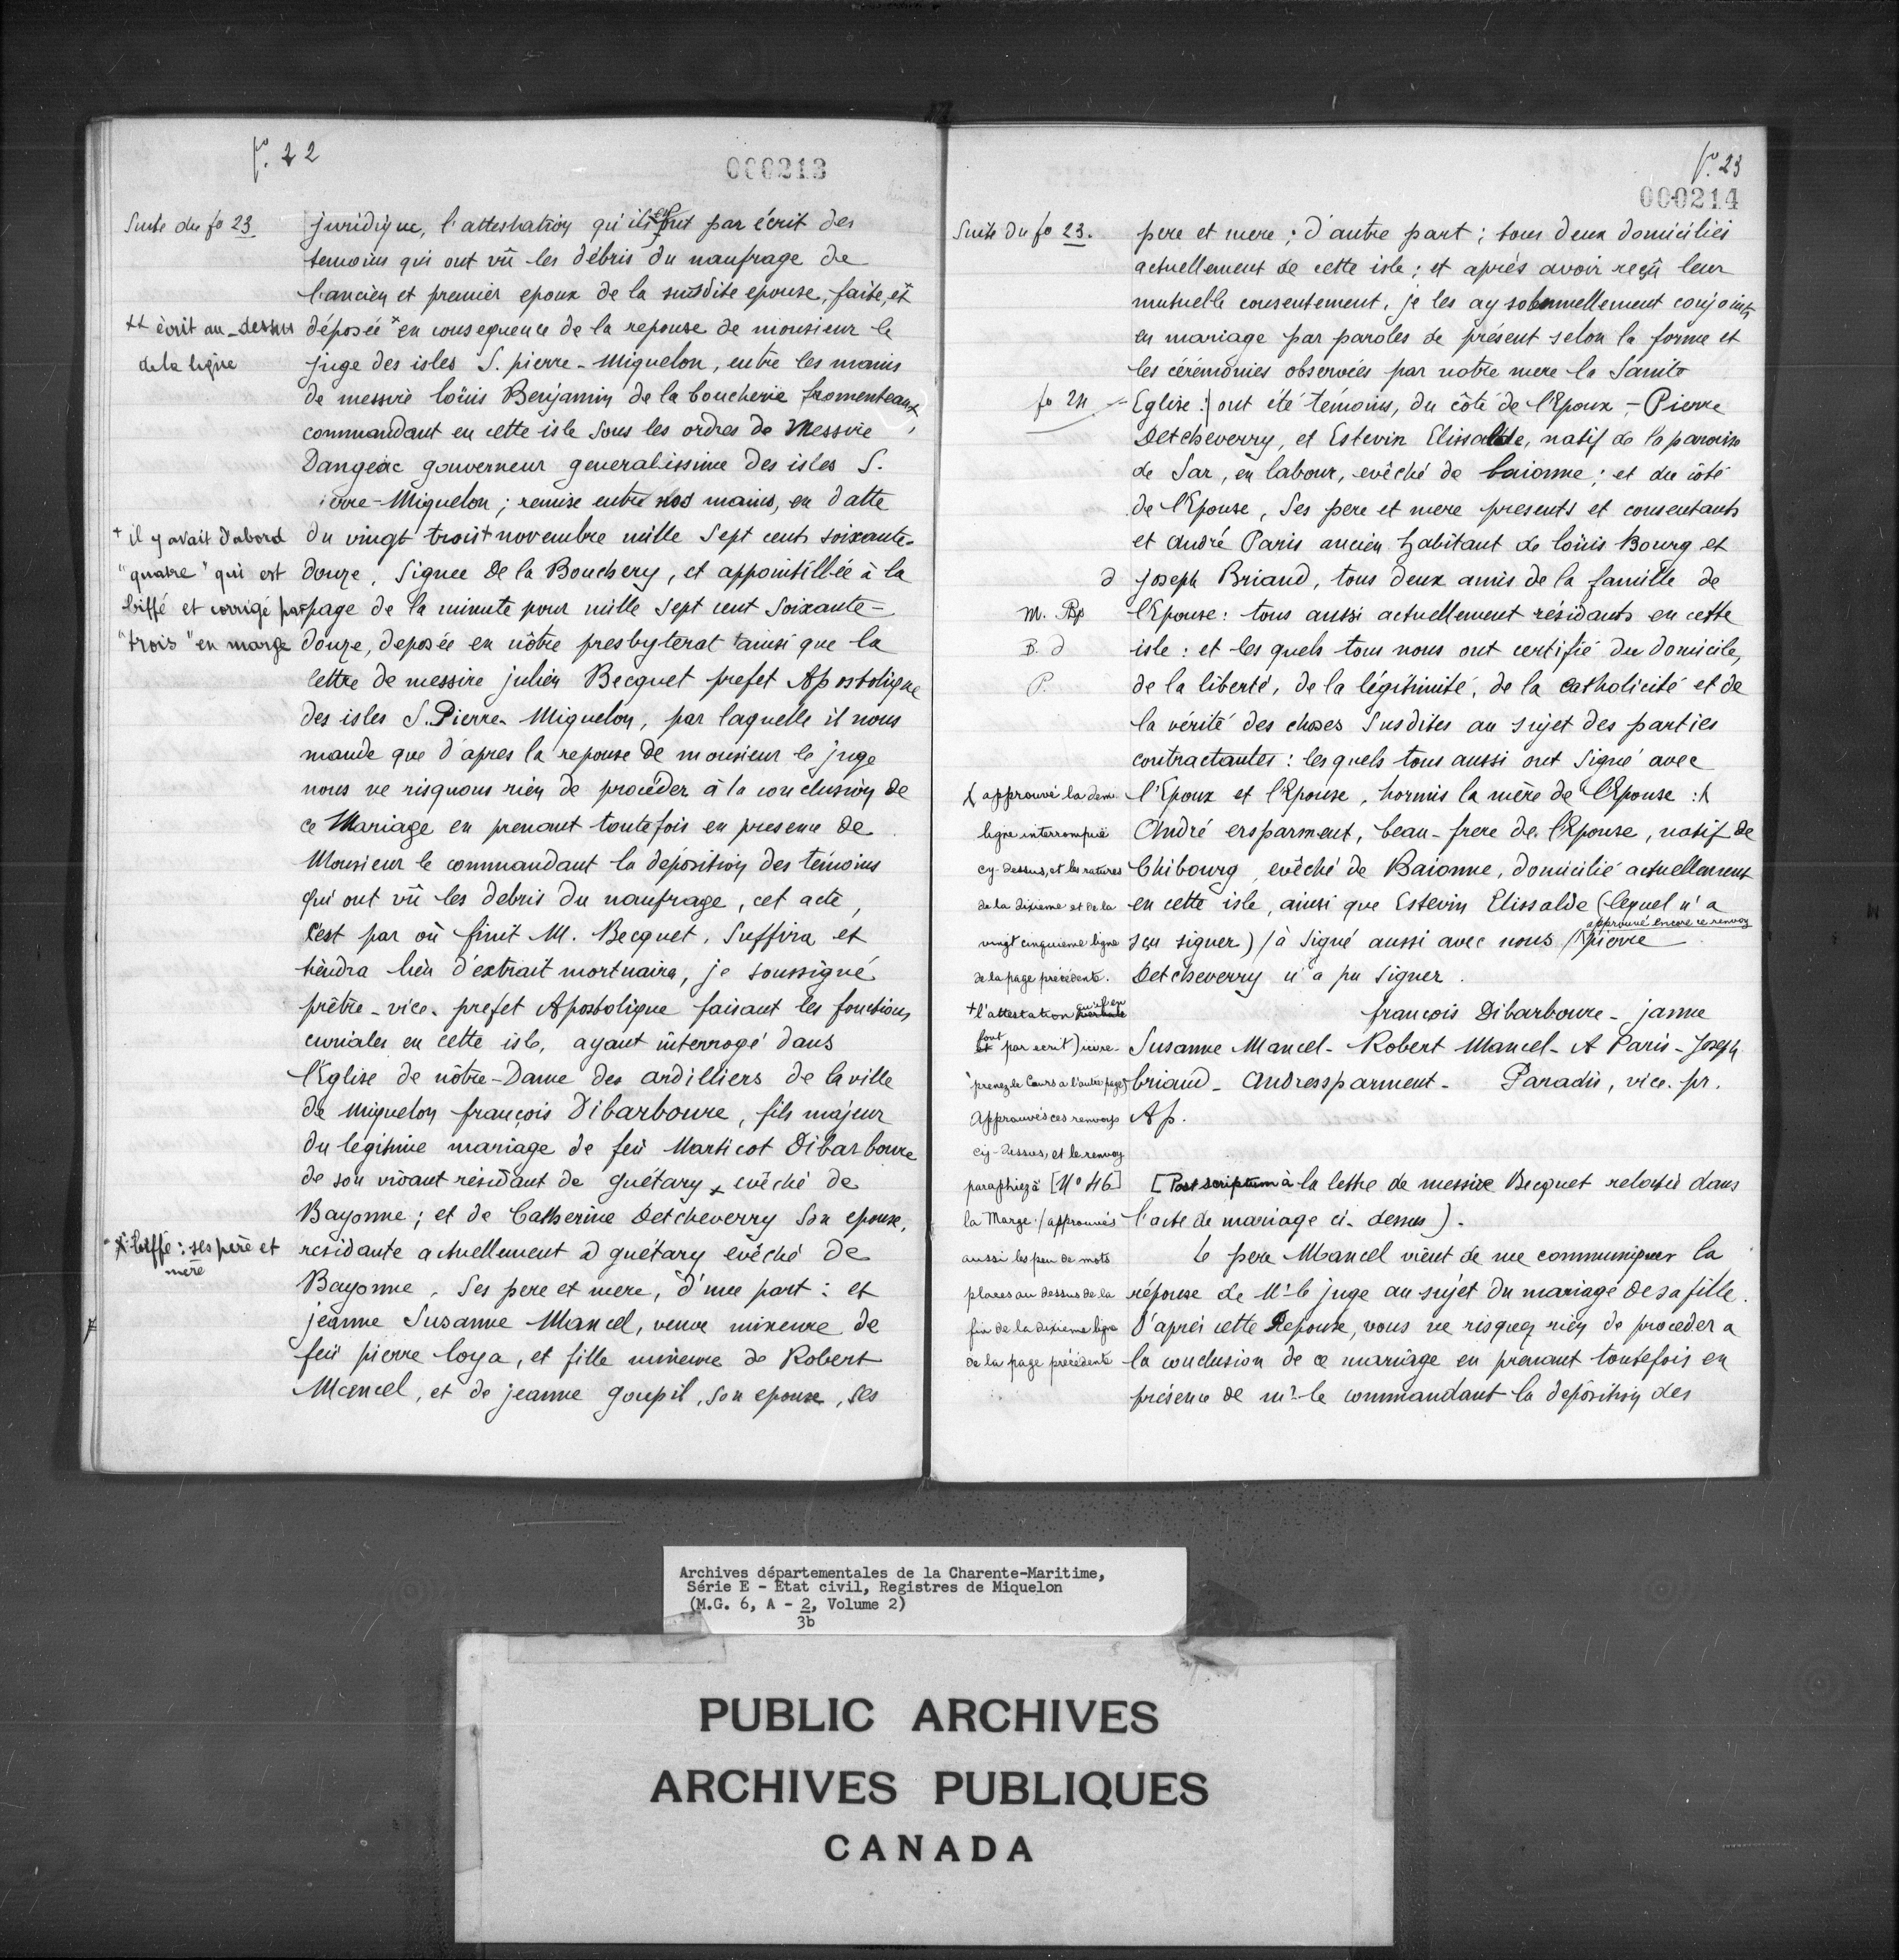 fo. 22
000213
Suite du fo 23
juridique, l'attestation qu'ils font par écrit des
temoins qui ont vû les débris du naufrage de
l'ancien et premier epoux de la susdite epouse, faite, et
++ écrit au-dessus
de la ligne
déposée en consequence de la reponse de monsieur le
juge des isles S. pierre-Miquelon, entre les mains
de messire loüis Benjamin de la boucherie fromenteaux,
commandant en cette isle sous les ordres de Messire
Dangeac gouverneur generalissime des isles S.
ierre-Miquelon ; remise entre nos mains, en datte
+ il y avait d'abord
"quatre" qui est
biffé et corrigé par
"trois" en marge
du vingt trois + novembre mille Sept cents soixante-
douze, Signee De la Bouchery, et appointillée à la
page de la minute pour mille sept cent Soixante-
douze, deposée en nôtre presbyterat ainsi que la
lettre de messire julien Becquet prefet Apostolique
des isles S. Pierre-Miquelon, par laquelle il nous
mande que d'apres la reponse de monsieur le juge
nous ne risquons rien de procéder à la conclusion de
ce Mariage en prenant toutefois en presence de
Monsieur le commandant la déposition des témoins
qui ont vû les debris du naufrage, cet acte,
c'est par où finit M. Becquet, Suffira et
tiendra lieu d'extrait mortuaire, je soussigné
prêtre-vice-prefet Apostolique faisant les fonctions
curiales en cette isle, ayant interrogé dans
l'Eglise de nôtre-Dame des ardilliers de la ville
de miquelon françois Dibarboure, fils majeur
du légitime mariage de feü Marticot Dibarboure
de son vivant résidant de guétary + evêché de
Bayonne ; et de Catherine Detcheverry son epouse,
* biffé : ses père et
mère
residante actuellement à guétary evêché de
Bayonne, Ses pere et mere, d'une part : et
jeanne Susanne Mancel, veuve mineure de
feü pierre loya, et fille mineure de Robert
Mancel, et de jeanne goupil, son epouse, ses
fo. 23
000214
Suite du fo 23.
pere et mere ; d'autre part ; tous deux domiciliés
actuellement de cette isle ; et après avoir reçû leur
mutuelle consentement, je les ay solemnellement conjoints
en mariage par paroles de présent selon la forme et
les cérémonies observées par notre mere la Sainte
fo 24
Eglise : ont été témoins, du côté de l'Epoux, - Pierre
Detcheverry, et Estevin Elissalde, natif de la paroisse
de Sar, en labour, evêché de baionne ; et du côté
de l'Epouse, Ses pere et mere presents et consentants
et André Paris ancien habitant de loüis Bourg et
joseph Briand, tous deux amis de la famille de
l'Epouse : tous aussi actuellement résidants en cette
isle : et les quels tous nous ont certifié du domicile,
de la liberté, de la légitimité, de la catholicité et de
la vérité des choses Susdites au sujet des parties
contractantes : les quels tous aussi ont Signé avec
l'Epoux et l'Epouse, hormis la mère de l'Epouse :
André ersparment, beau-frere de l'Epouse, natif de
Chibourg, evêché de Baionne, domicilié actuellement
en cette isle, ainsi que Estevin Elissalde (lequel n'a
approuvé encore ce renvoy
sçu signer) / à Signé aussi avec nous / pierre
Detcheverry n'a pu signer.
françois Dibarboure - janne
Susanne Mancel - Robert Mancel - A Paris - Joseph
briand - Andressparment - Paradis, vice. pr.
Ap.
d
m.
B. d
P.
approuvé la dem.
ligne interrompue
cy-dessus, et les ratures
de la dixieme et de la
vingt cinquieme ligne
de la page précédente.
+ l'attestation qu'ils en
font par ecrit)
prenez le cours a l'autre page
Approuvés ces renvoys
cy-dessus, et le renvoy
paraphé à [No 46]
la Marge. / approuvés
aussi les peu de mots
placés au dessus de la
fin de la dixieme ligne
de la page précédente
[Post scriptum à la lettre de messire Becquet relatée dans
l'acte de mariage ci-dessus).
le pere Mancel vient de me communiquer la
réponse de Mr le juge au sujet du mariage de sa fille.
D'après cette Reponse, vous ne risquez rien de proceder a
la conclusion de ce mariage en prenant toutefois en
présence de mr le commandant la déposition des
Archives départementales de la Charente-Maritime,
Série E - Etat civil, Registres de Miquelon
(M.G. 6, A - 2, Volume 2)
3b
PUBLIC ARCHIVES
ARCHIVES PUBLIQUES
CANADA